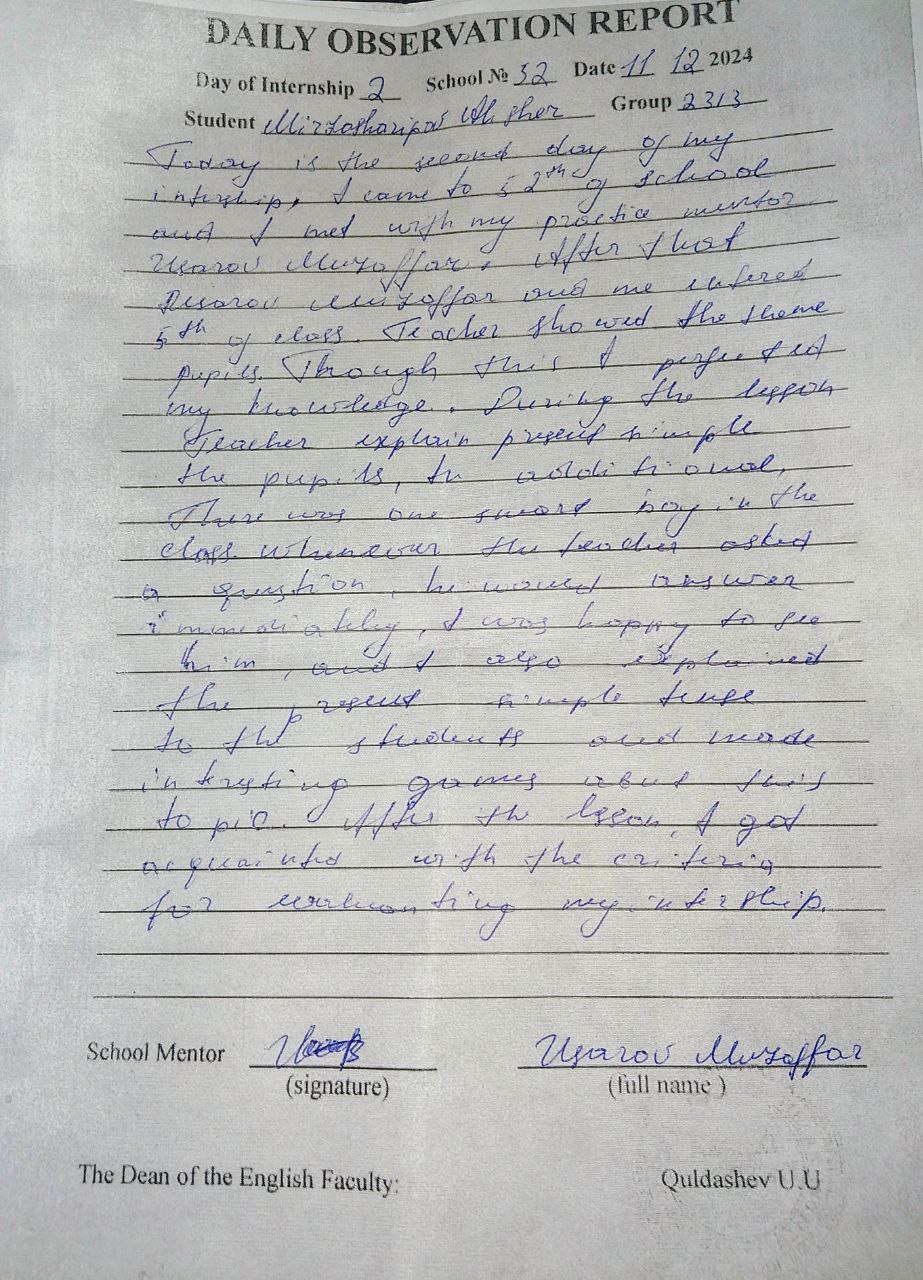 DAILY OBSERVATION REPORT
Day of Internship 2 School № 52 Date 11 12 2024
Student Mirzasharipov Alisher Group 2313
Today is the second day of my
intership, I came to 52th of school
and I met with my practice mentor
Usarov Muzaffar. After that
Usarov Muzaffar and me entered
5th of class. Teacher showed the theme
pupils. Through this I perfected
my knowledge. During the lesson
Teacher explain present simple
the pupils, In additional,
There was one smart boy in the
class whenever the teacher asked
a question, he would answer
immediately, I was happy to see
him, and I also explained
the present simple tense
to the students and made
intresting games abut this
topic. After the lesson, I got
acquainted with the criteria
for evaluating my intership.
School Mentor Usarov Muzaffar
(signature) (full name )
The Dean of the English Faculty: Quldashev U.U